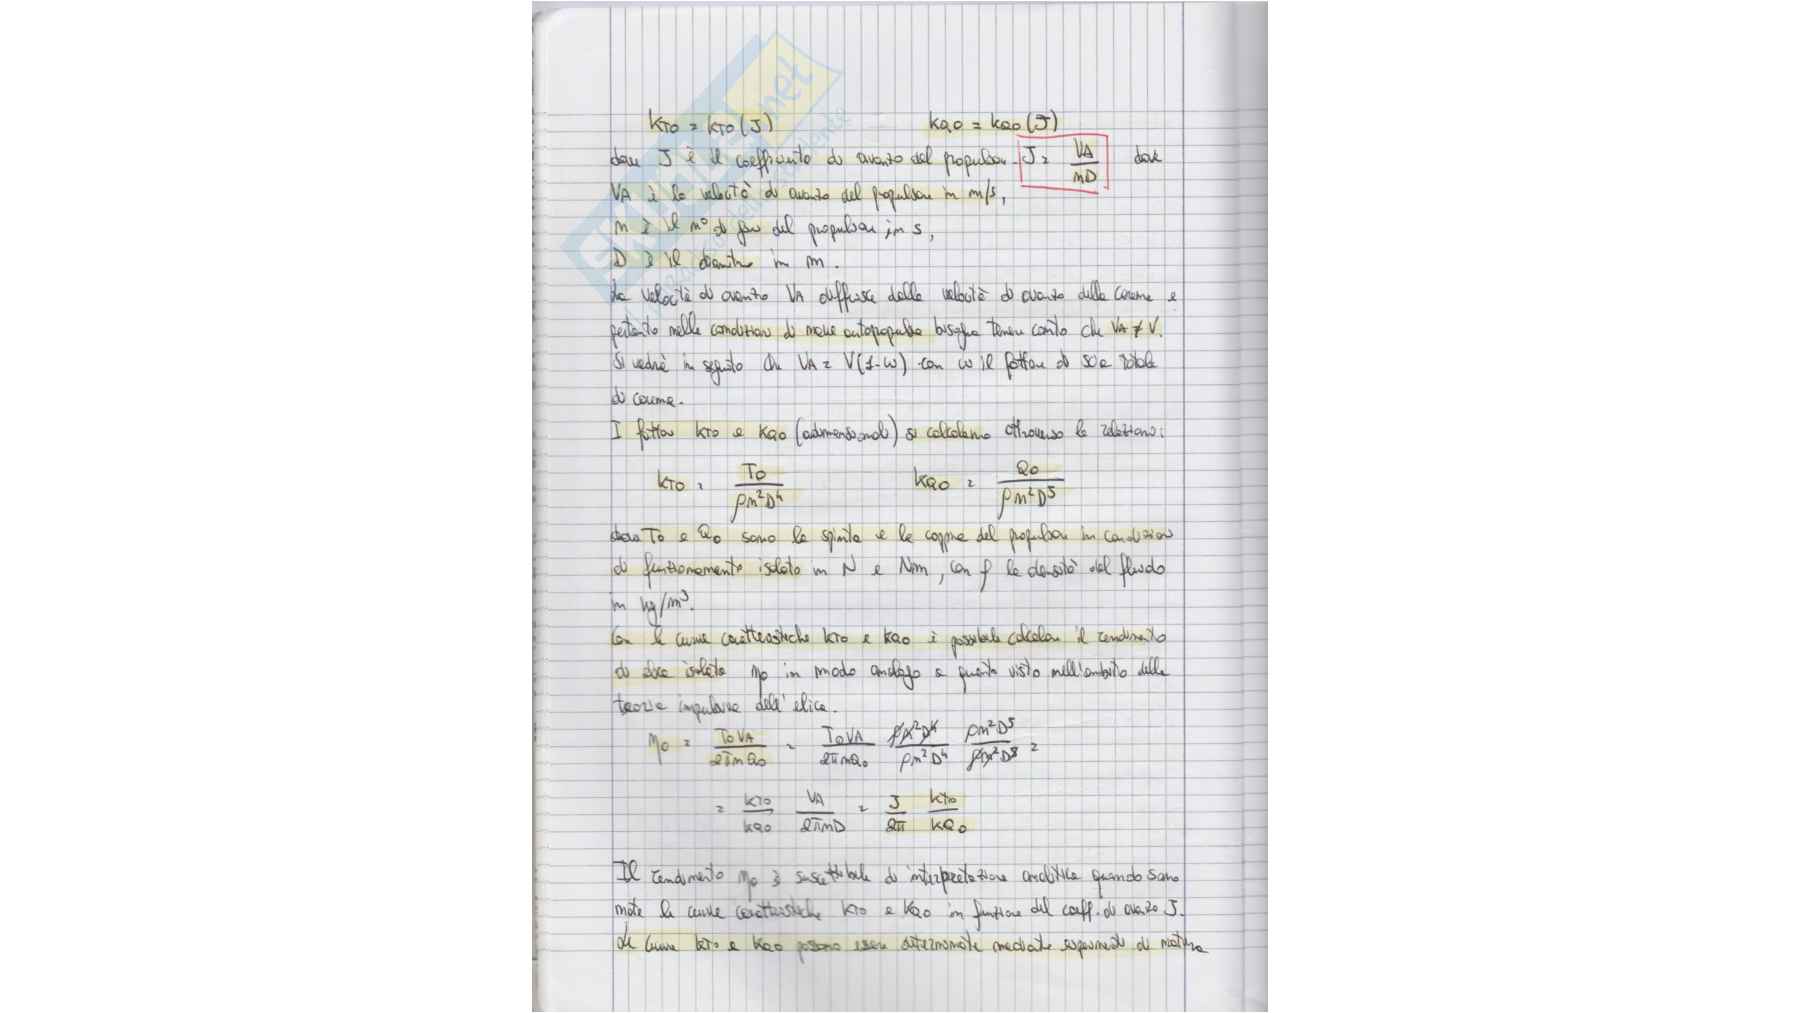 KTO = KTO (J) KQO = KQO (J)
dove J è il coefficiente di avanzo del propulsore J = VA/nD dove
VA è la velocità di avanzo del propulsore in m/s,
n è il n° di giri del propulsore in s,
D è il diametro in m.
La velocità di avanzo VA differisce dalla velocità di avanzo della carena e
pertanto nelle condizioni di nave autopropulsa bisogna tenere conto che VA ≠ V.
Si vedrà in seguito che VA = V(1-w) con w il fattore di scia totale
di carena.
I fattori KTO e KQO (adimensionali) si calcolano attraverso le relazioni:
KTO = TO/ρn²D⁴ KQO = QO/ρn²D⁵
dove TO e QO sono la spinta e la coppia del propulsore in condizioni
di funzionamento isolato in N e Nm, con ρ la densità del fluido
in kg/m³.
Con le curve caratteristiche KTO e KQO è possibile calcolare il rendimento
di elica isolata ηO in modo analogo a quanto visto nell'ambito della
teoria impulsiva dell'elica.
ηO = TOVA/2πnQO = TOVA/2πnQO ρn²D⁴/ρn²D⁴ ρn²D⁵/ρn²D⁵ =
= KTO/KQO VA/2πnD = J/2π KTO/KQO
Il rendimento ηO è suscettibile di interpretazione analitica quando sono
note le curve caratteristiche KTO e KQO in funzione del coeff. di avanzo J.
Le curve KTO e KQO possono essere determinate mediate esperimenti di